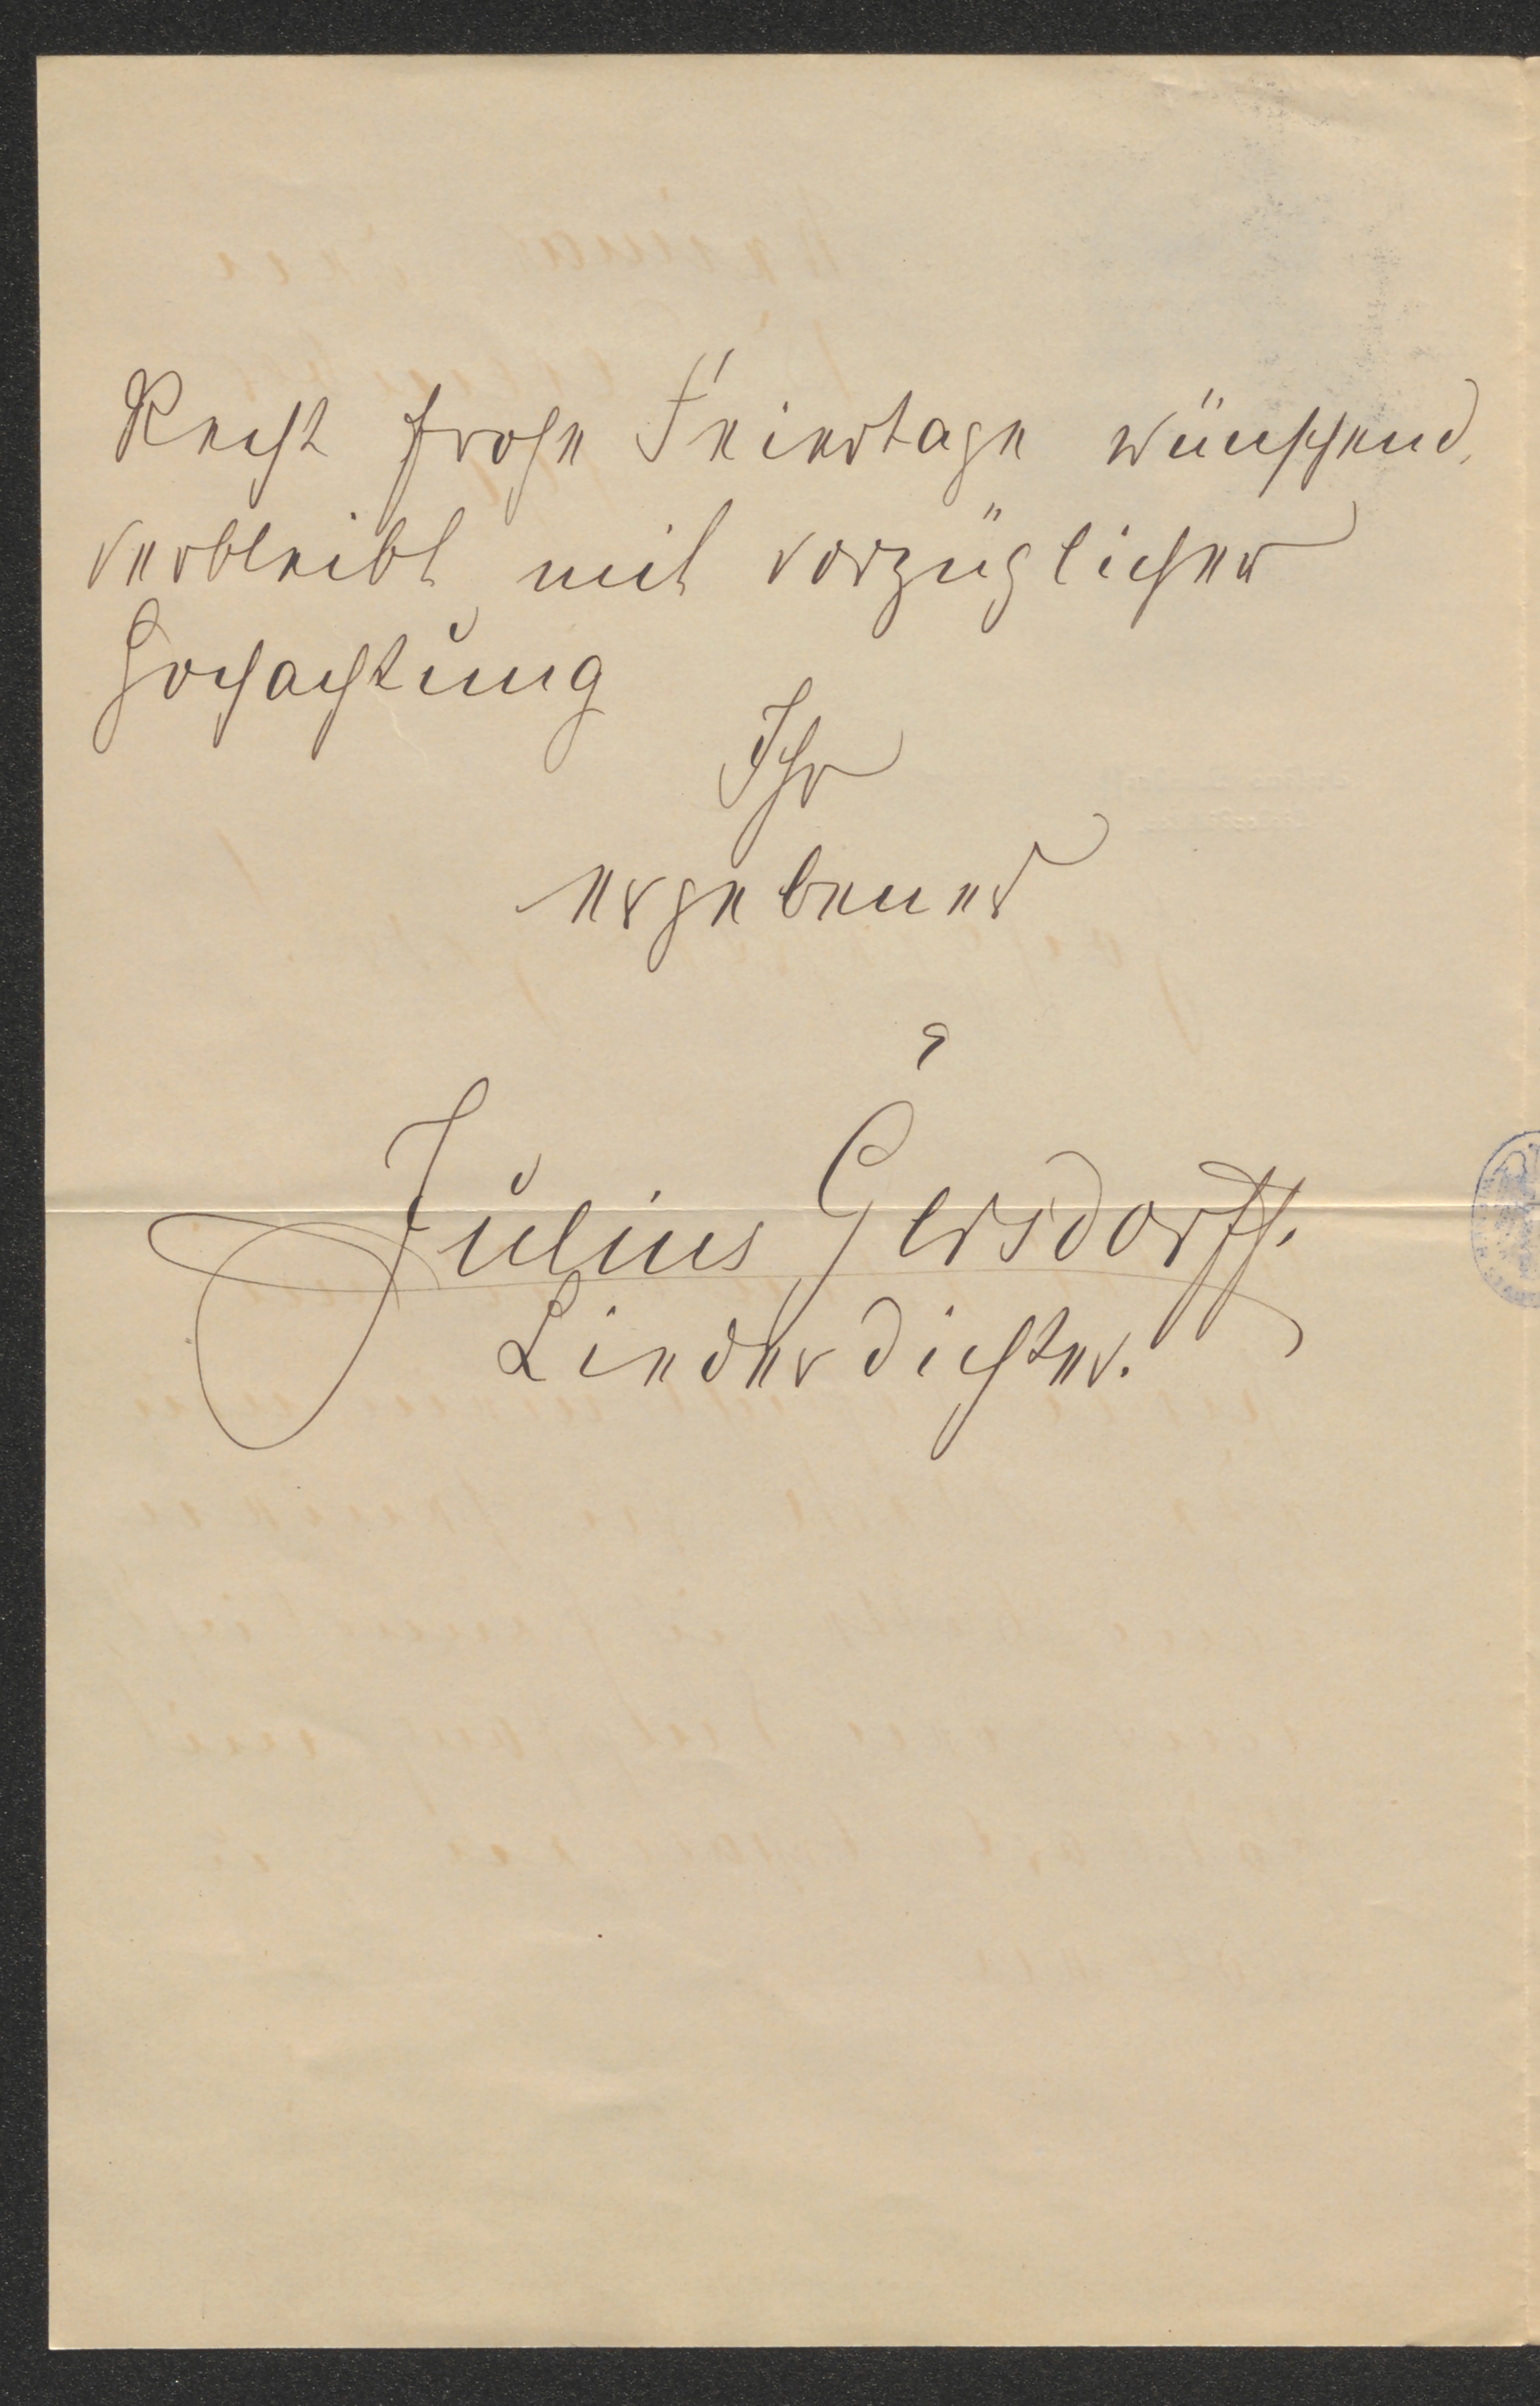 Recht frohe Feiertage wünschend,
verbleibt mit vorzüglicher
Hochachtung
Ihr
ergebener
Julius Gersdorff.
Liederdichter.